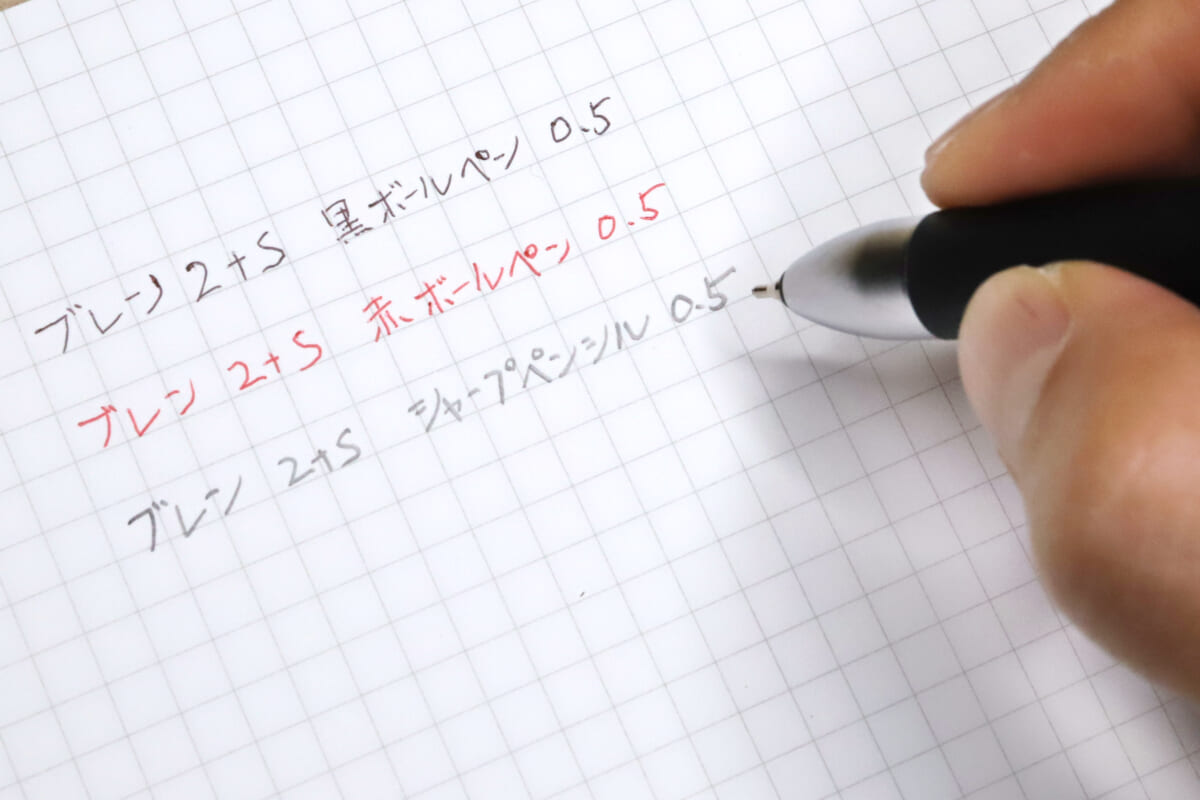 ブレン 2+S 黒ボールペン 0.5
ブレン 2+S 赤ボールペン 0.5
ブレン 2+S シャープペンシル 0.5